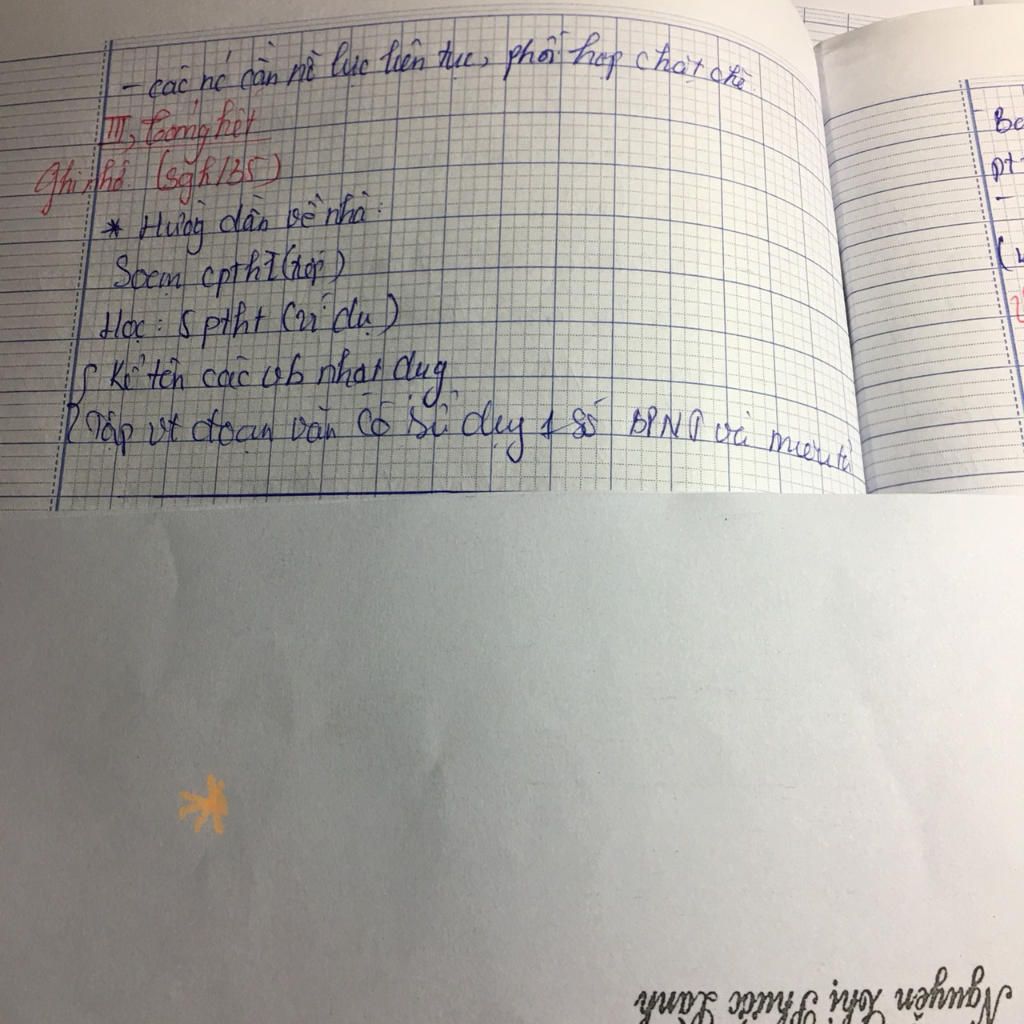 - các nc cần nỗ lực liên tục, phối hợp chặt chẽ
III, Tổng kết
Ghi nhớ (sgk/35)
* Hướng dẫn về nhà:
Soạn cpthT (tiếp)
Học: 5 ptht (ví dụ)
Kể tên các vb nhật dụg
Tập vt đoạn văn có sử dụg 1 số BPNT và miêu tả
Bc
pt
-
Nguyễn Thị Phước Lành